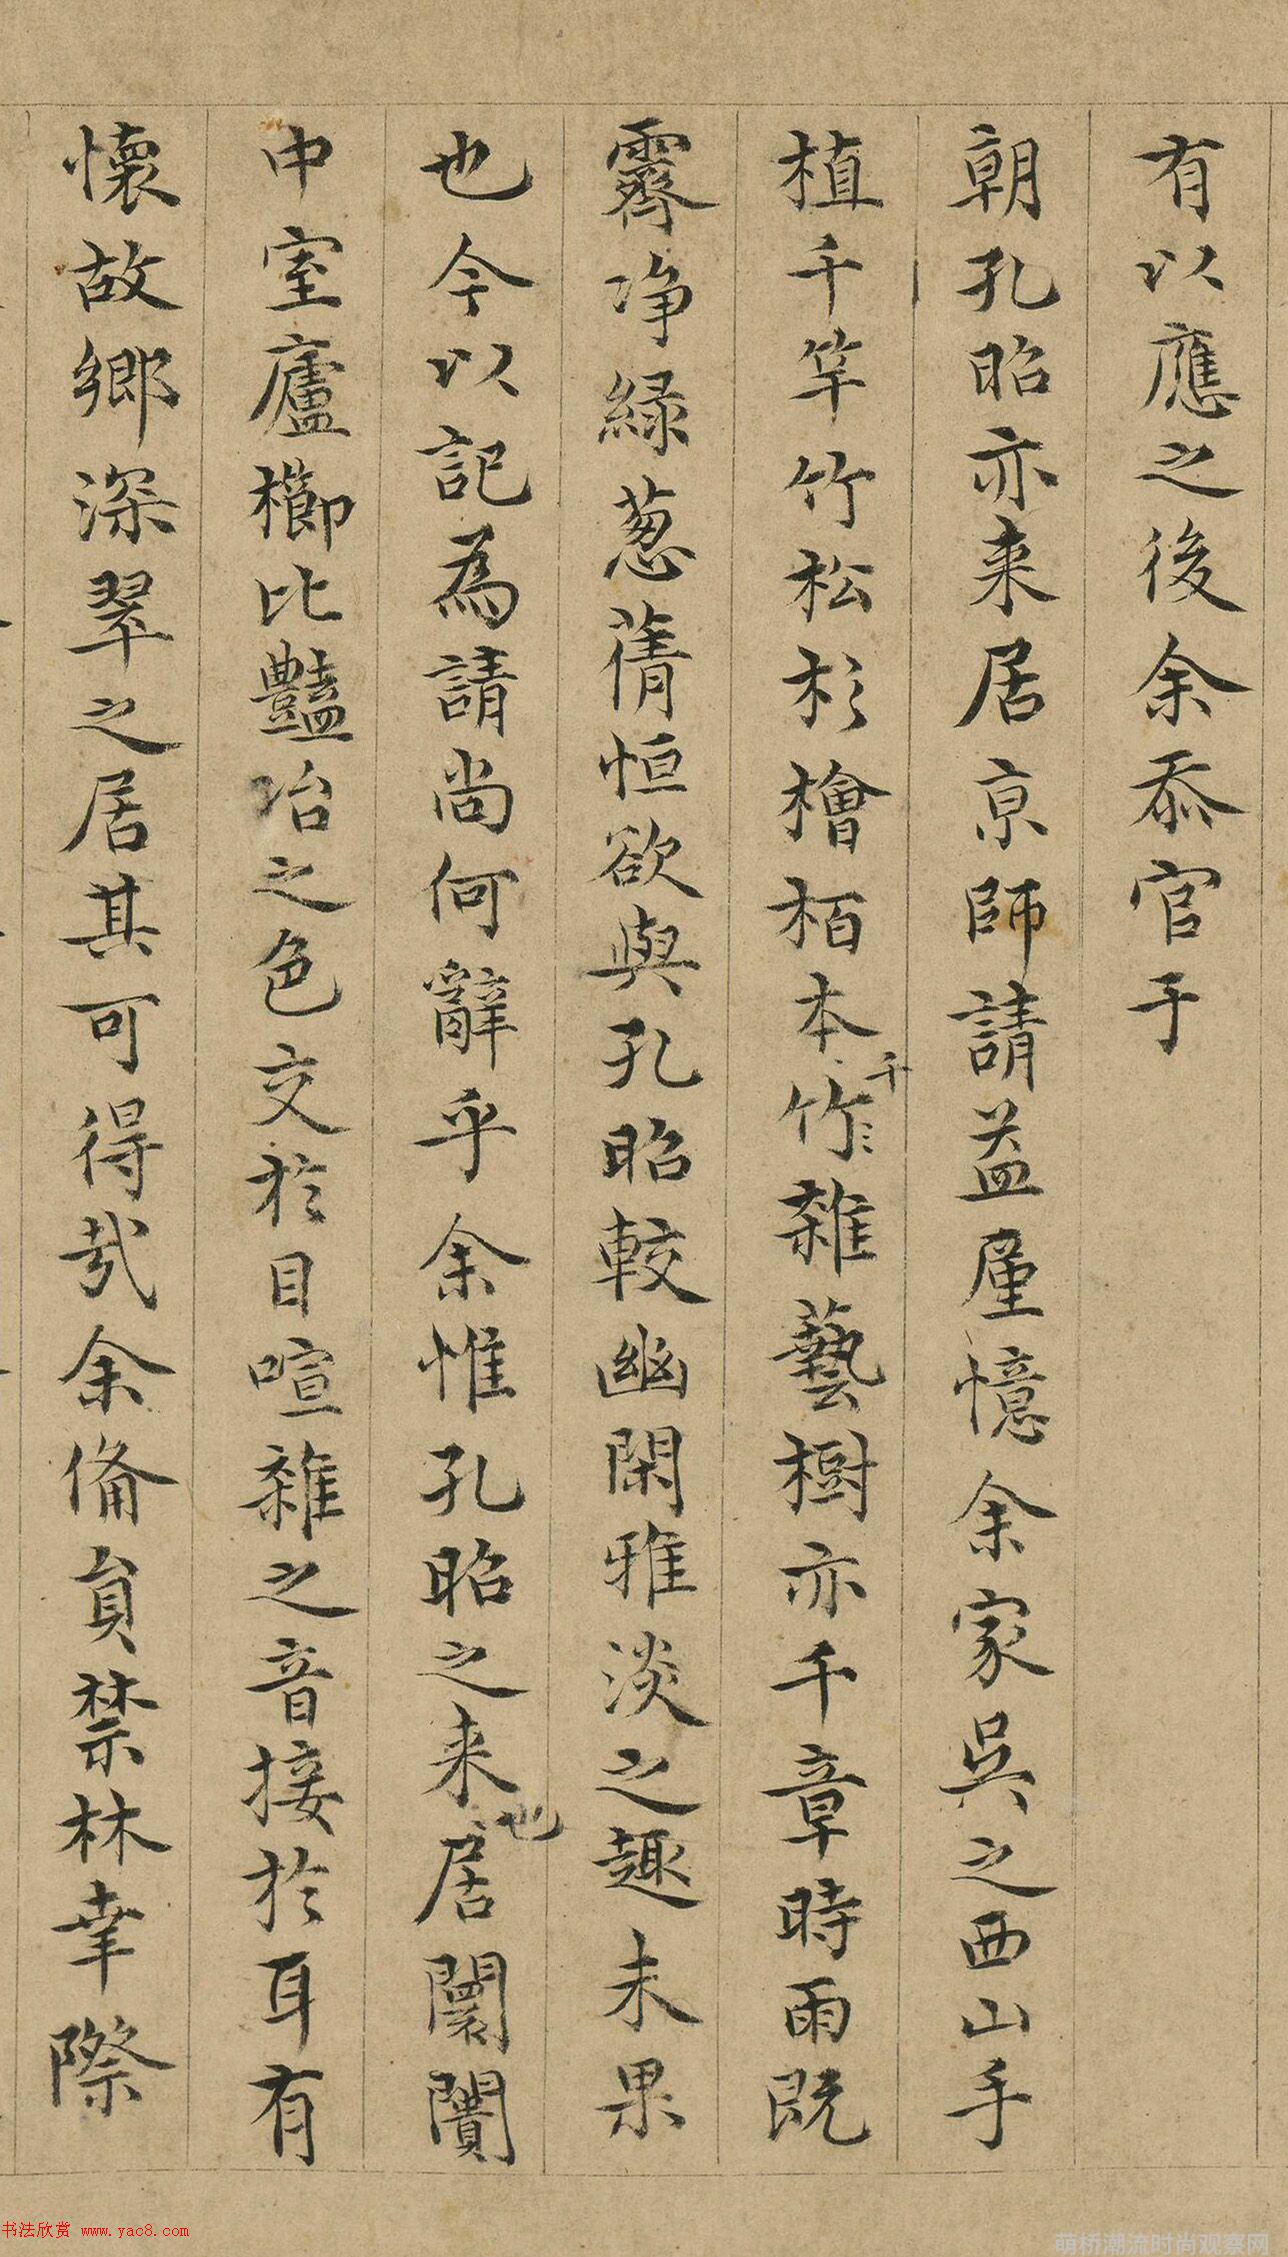 有以應之後余忝官于
朝孔昭亦来居京師請益厪憶余家吳之西山手
植千竿竹松杉檜栢本千竹〻雜藝樹亦千章時雨既
霽净緑葱蒨恒欲與孔昭較幽閑雅淡之趣未果
也今以記為請尚何辭乎余惟孔昭之来也居闤闠
中室廬櫛比豔冶之色交於目喧雜之音接於耳有
懷故鄉深翠之居其可得㢤余備負禁林幸際
书法欣赏 www.yac8.com
萌桥潮流时尚观察网